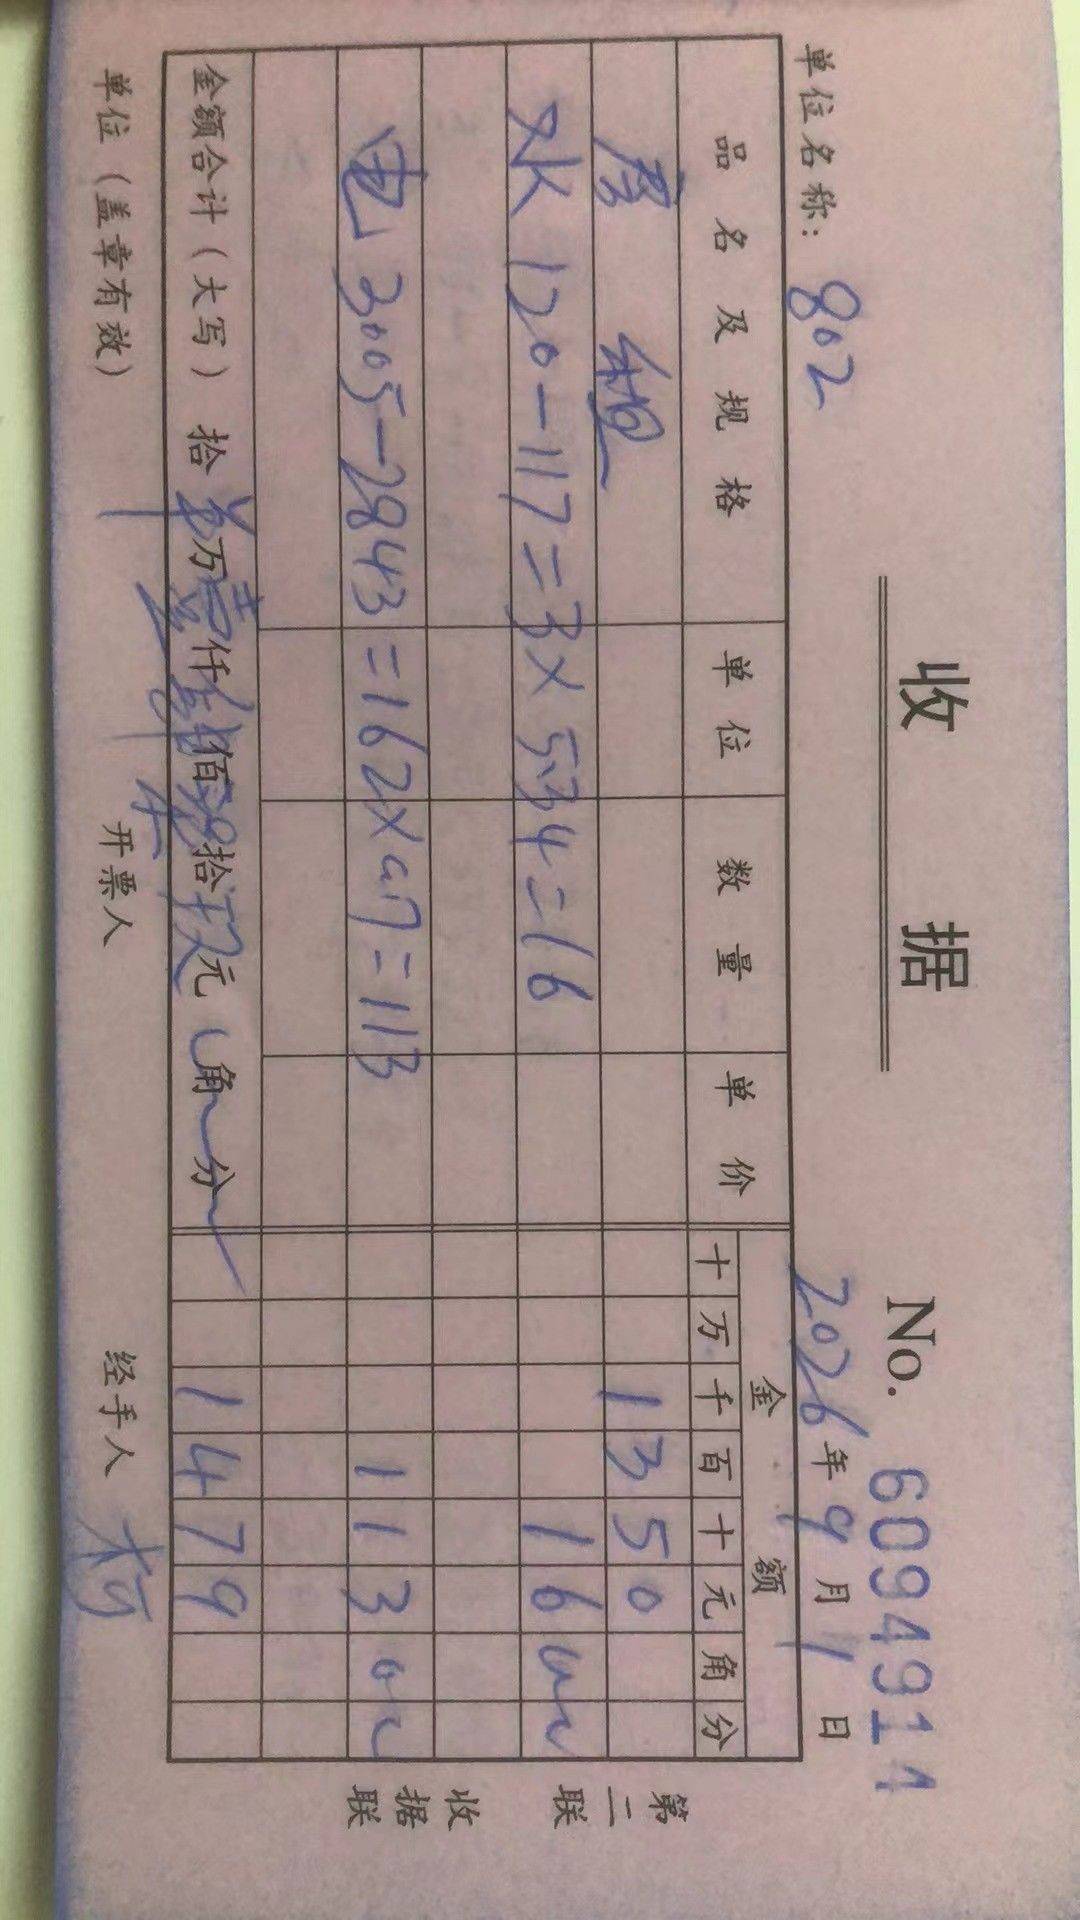 收 据
No. 6094914
单位名称: 802 2026年9月1日
品名及规格 单位 数量 单价 金额
十 万 千 百 十 元 角 分
房 租 1350
水 120-117=3×5.34=16 16
电 3005-2843=162×0.7=113 113
金额合计(大写) 拾 万 仟 佰 拾 元 角 分 1479
单位(盖章有效) 开票人 经手人
第二联 收据联